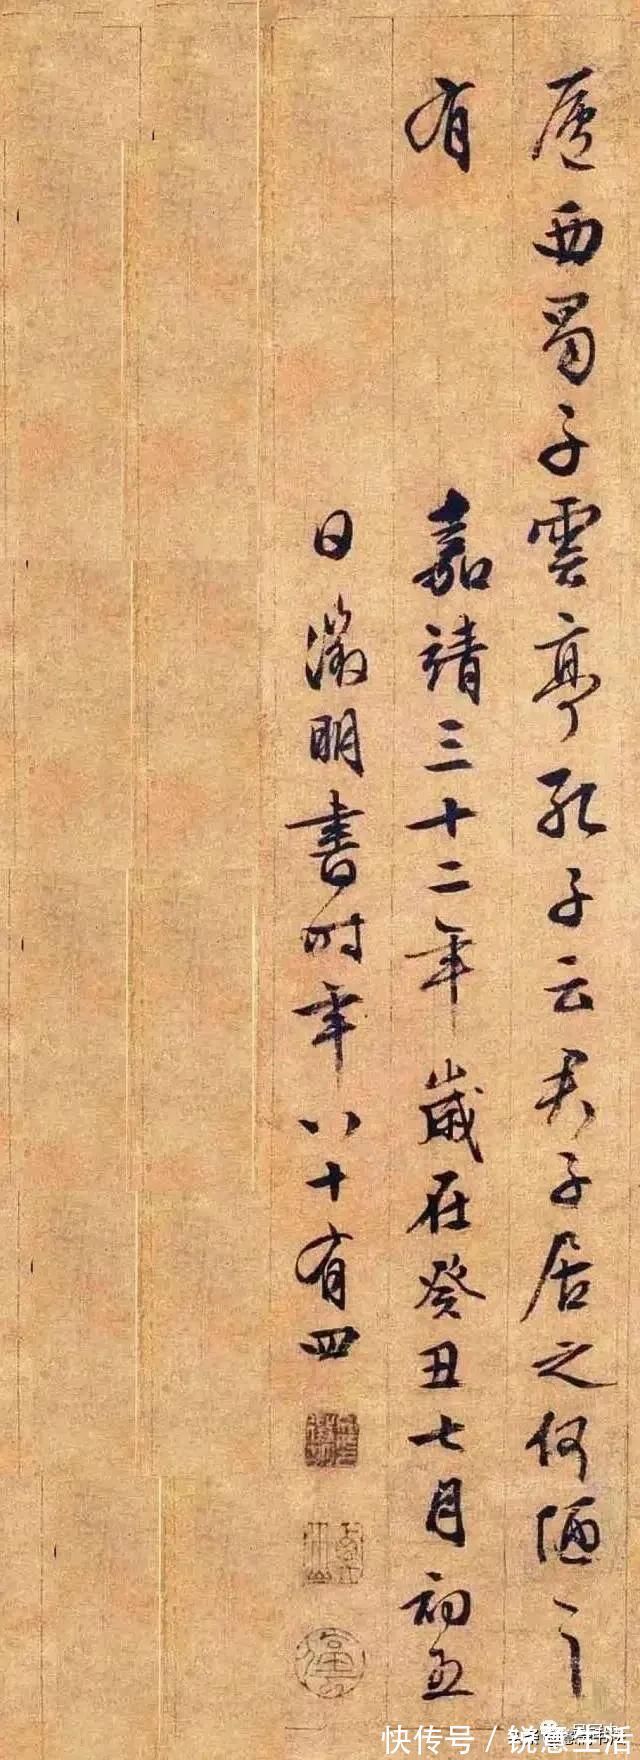 廬西蜀子雲亭孔子云君子居之何陋之
有
嘉靖三十二年歲在癸丑七月初五
日徵明書時年八十有四
快传号/锐意生活